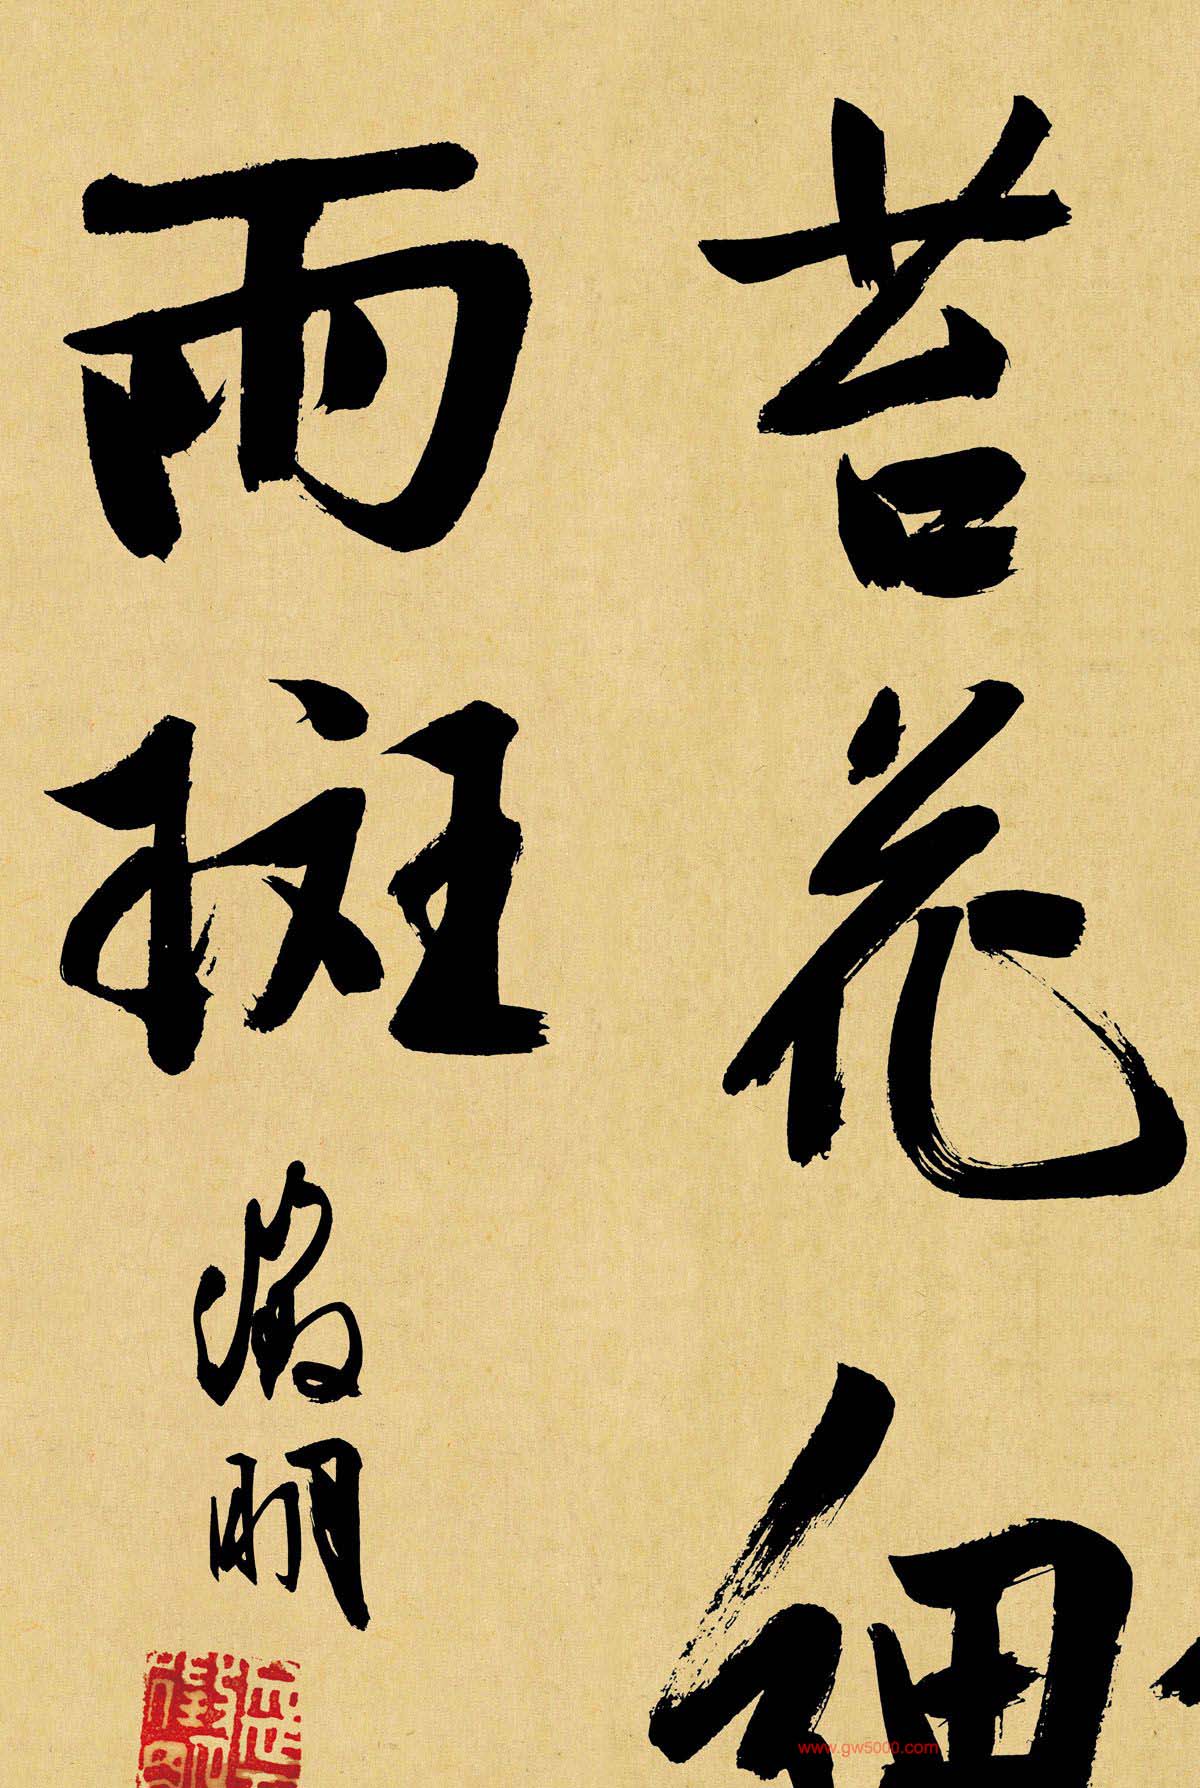 苔花细
雨斑
徵明
www.gw5000.com